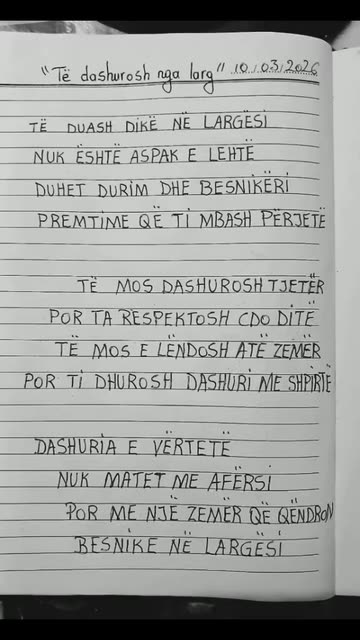 "Të dashurosh nga larg" 10/03/2026
TË DUASH DIKË NË LARGËSI
NUK ËSHTË ASPAK E LEHTË
DUHET DURIM DHE BESNIKËRI
PREMTIME QË TI MBASH PËRJETË
TË MOS DASHUROSH TJETËR
POR TA RESPEKTOSH CDO DITË
TË MOS E LËNDOSH ATË ZEMËR
POR TI DHUROSH DASHURI ME SHPIRTË
DASHURIA E VËRTETË
NUK MATET ME AFËRSI
POR ME NJË ZEMËR QË QËNDRON
BESNIKE NË LARGËSI